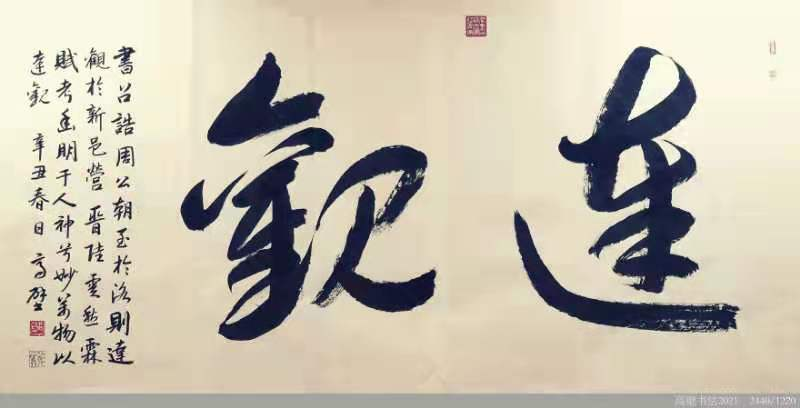 達觀
書召誥周公朝至於洛則達
觀於新邑營 晉陸雲愁霖
賦考幽明于人神兮妙萬物以
達觀 辛丑春日高壁
高壁书法2021 2440/1220